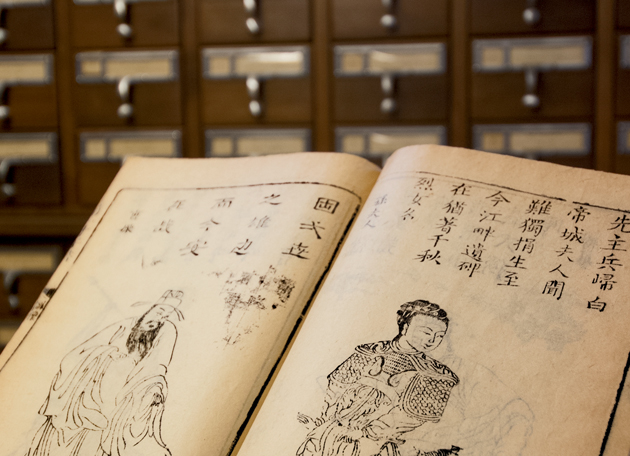 先主兵歸白
帝城夫人聞
難獨捐生至
今江畔遺碑
在猶著千秋
烈女名
孫夫人
固弌世
之雄也
而今安
在哉